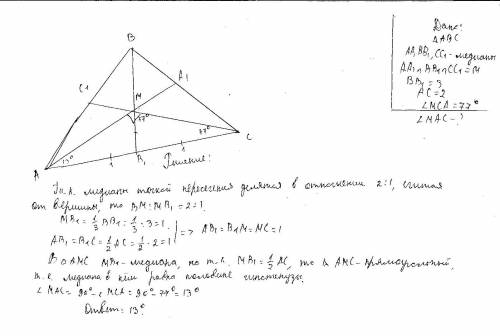 Дано:
△ABC
AA₁, BB₁, CC₁ - медианы
AA₁∩BB₁∩CC₁ = M
BB₁ = 3
AC = 2
∠MCA = 77°
∠MAC - ?
B
C1
A1
M
77°
77°
C
13°
1
1
A
B₁
Решение:
Т.к. медианы точкой пересечения делятся в отношении 2:1, считая
от вершины, то BM:MB₁ = 2:1.
MB₁ = 1/3 BB₁ = 1/3 · 3 = 1.
AB₁ = B₁C = 1/2 AC = 1/2 · 2 = 1
=> AB₁ = B₁M = MC = 1
В △AMC MB₁ - медиана, но т.к. MB₁ = 1/2 AC, то △ AMC - прямоугольный,
т.к. медиана в нём равна половине гипотенузы.
∠MAC = 90° - ∠MCA = 90° - 77° = 13°
Ответ: 13°.